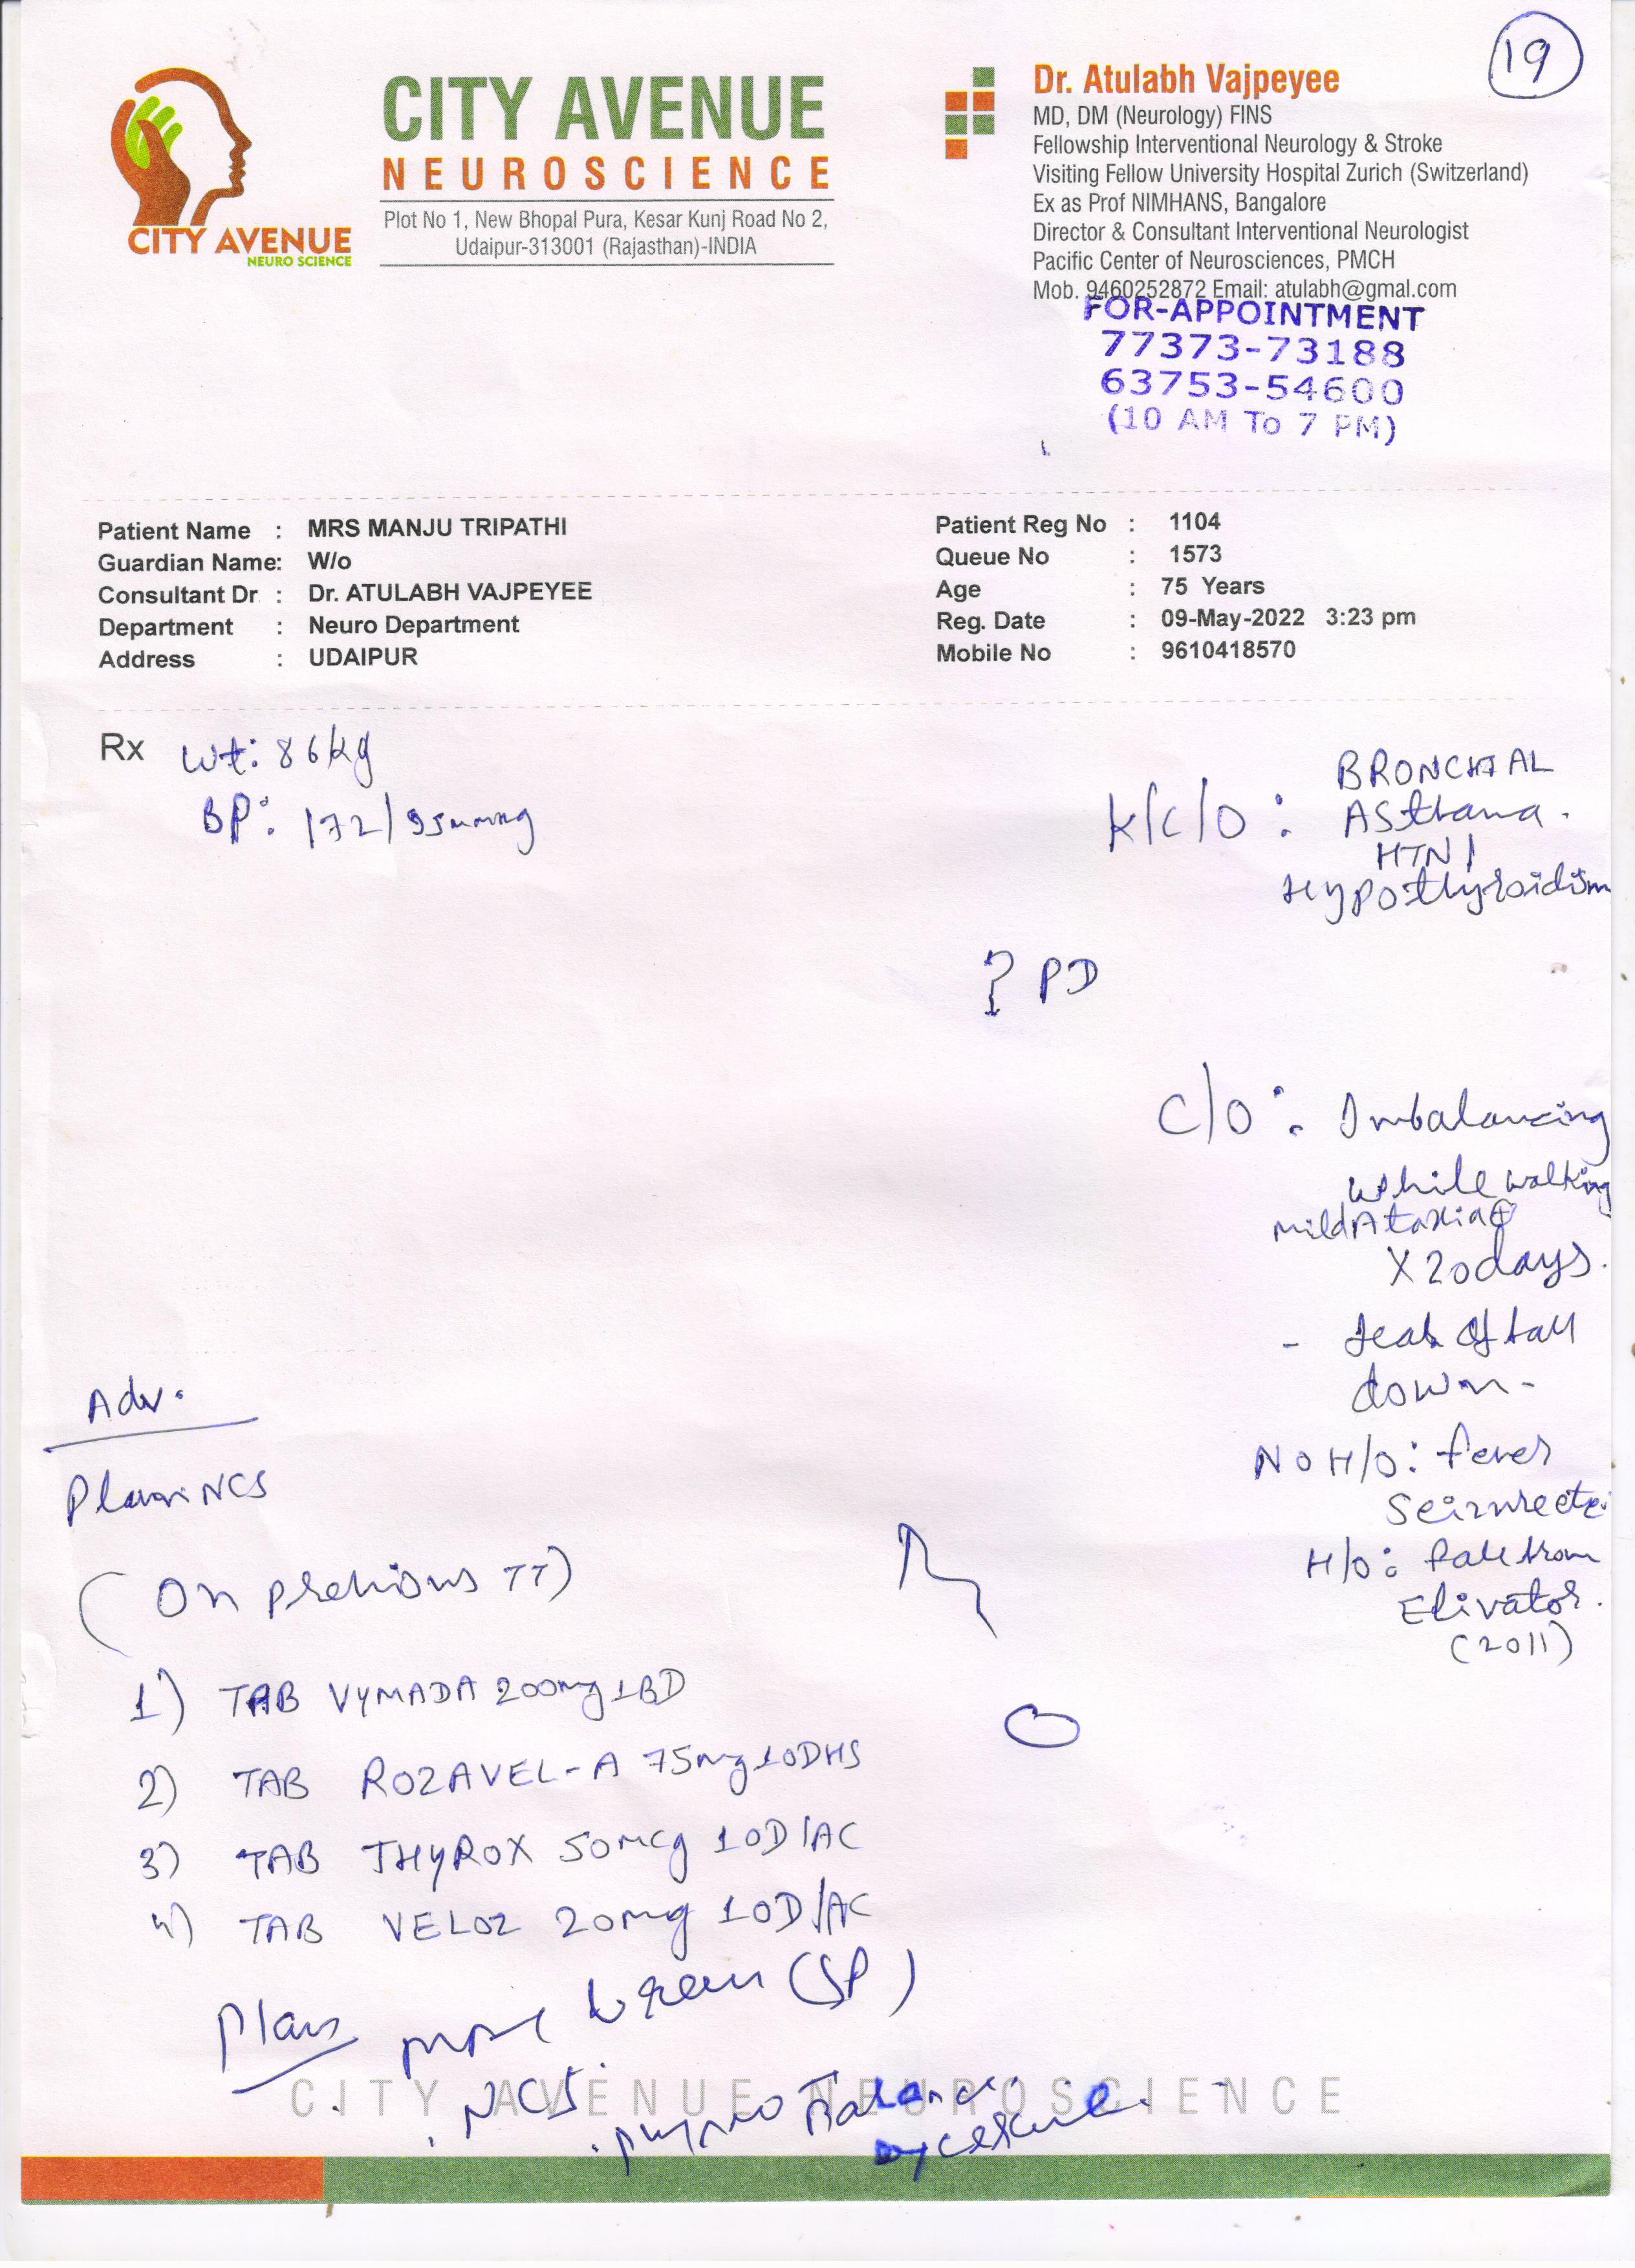 19
CITY AVENUE
NEURO SCIENCE
CITY AVENUE
NEUROSCIENCE
Plot No 1, New Bhopal Pura, Kesar Kunj Road No 2,
Udaipur-313001 (Rajasthan)-INDIA
Dr. Atulabh Vajpeyee
MD, DM (Neurology) FINS
Fellowship Interventional Neurology & Stroke
Visiting Fellow University Hospital Zurich (Switzerland)
Ex as Prof NIMHANS, Bangalore
Director & Consultant Interventional Neurologist
Pacific Center of Neurosciences, PMCH
Mob. 9460252872 Email: atulabh@gmal.com
FOR-APPOINTMENT
77373-73188
63753-54600
(10 AM To 7 PM)
Patient Name : MRS MANJU TRIPATHI
Guardian Name: W/o
Consultant Dr : Dr. ATULABH VAJPEYEE
Department : Neuro Department
Address : UDAIPUR
Patient Reg No : 1104
Queue No : 1573
Age : 75 Years
Reg. Date : 09-May-2022 3:23 pm
Mobile No : 9610418570
Rx Wt: 86kg
BP: 172/95mmHg
K/C/O : BRONCHIAL
ASthama.
HTN /
Hypothyroidism
? PD
C/O : Imbalancing
while walking
mild Ataxia ⊕
X 20 days.
- fear of fall
down -
NO H/O: fever
Seizure etc.
H/O: fall from
Elivator.
(2011)
Adv.
Plan NCS
(On previous TT)
1) TAB VYMADA 200mg 1BD
2) TAB ROZAVEL-A 75mg 1ODHS
3) TAB THYROX 50mcg 1OD/AC
4) TAB VELOZ 20mg 1OD/AC
Plan
(SP)
NCS
CITY AVENUE NEUROSCIENCE